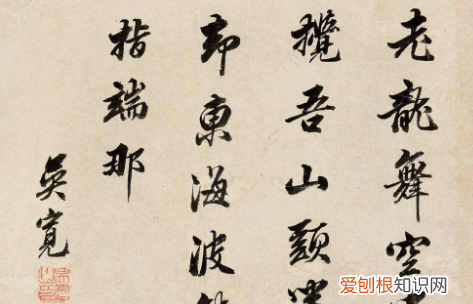 老龍舞空
攬吾山
却東海波
指端那
吳寬
爱刨根知识网